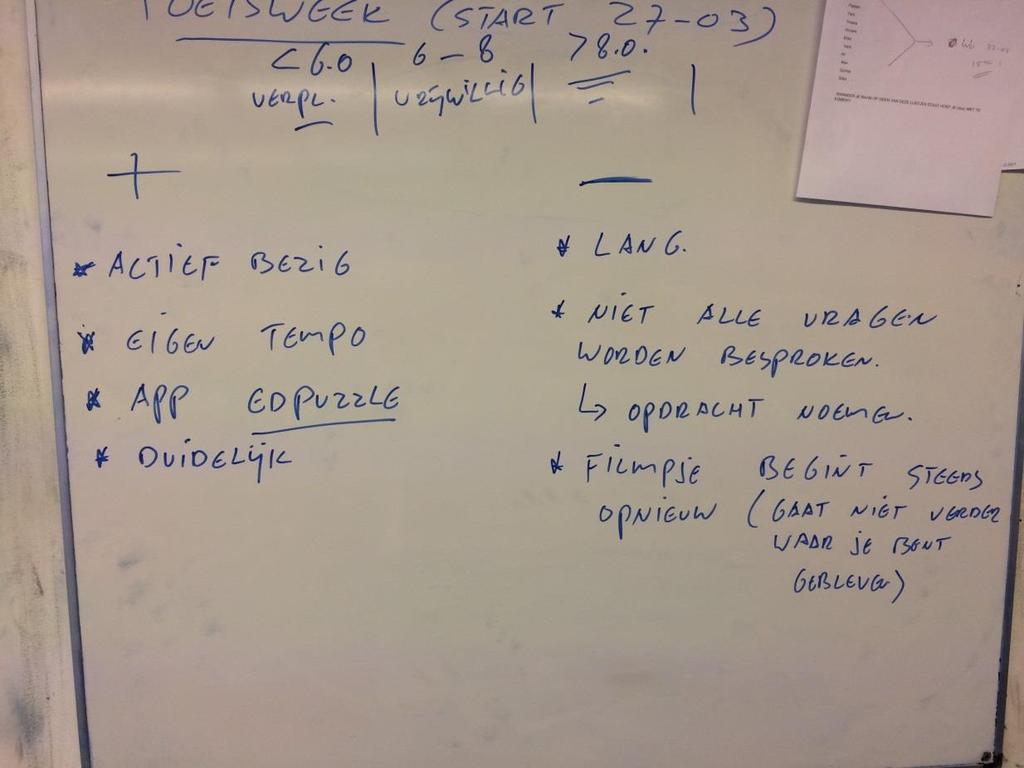 TOETSWEEK (START 27-03)
<6.0 6-8 >8.0.
VERPL. VRIJWILLIG
+ -
* ACTIEF BEZIG
* EIGEN TEMPO
* APP EDPUZZLE
* DUIDELIJK
* LANG.
* NIET ALLE VRAGEN
WORDEN BESPROKEN.
↳ OPDRACHT NOEMEN.
* FILMPJE BEGINT STEEDS
OPNIEUW (GAAT NIET VERDER
WAAR JE BENT
GEBLEVEN)